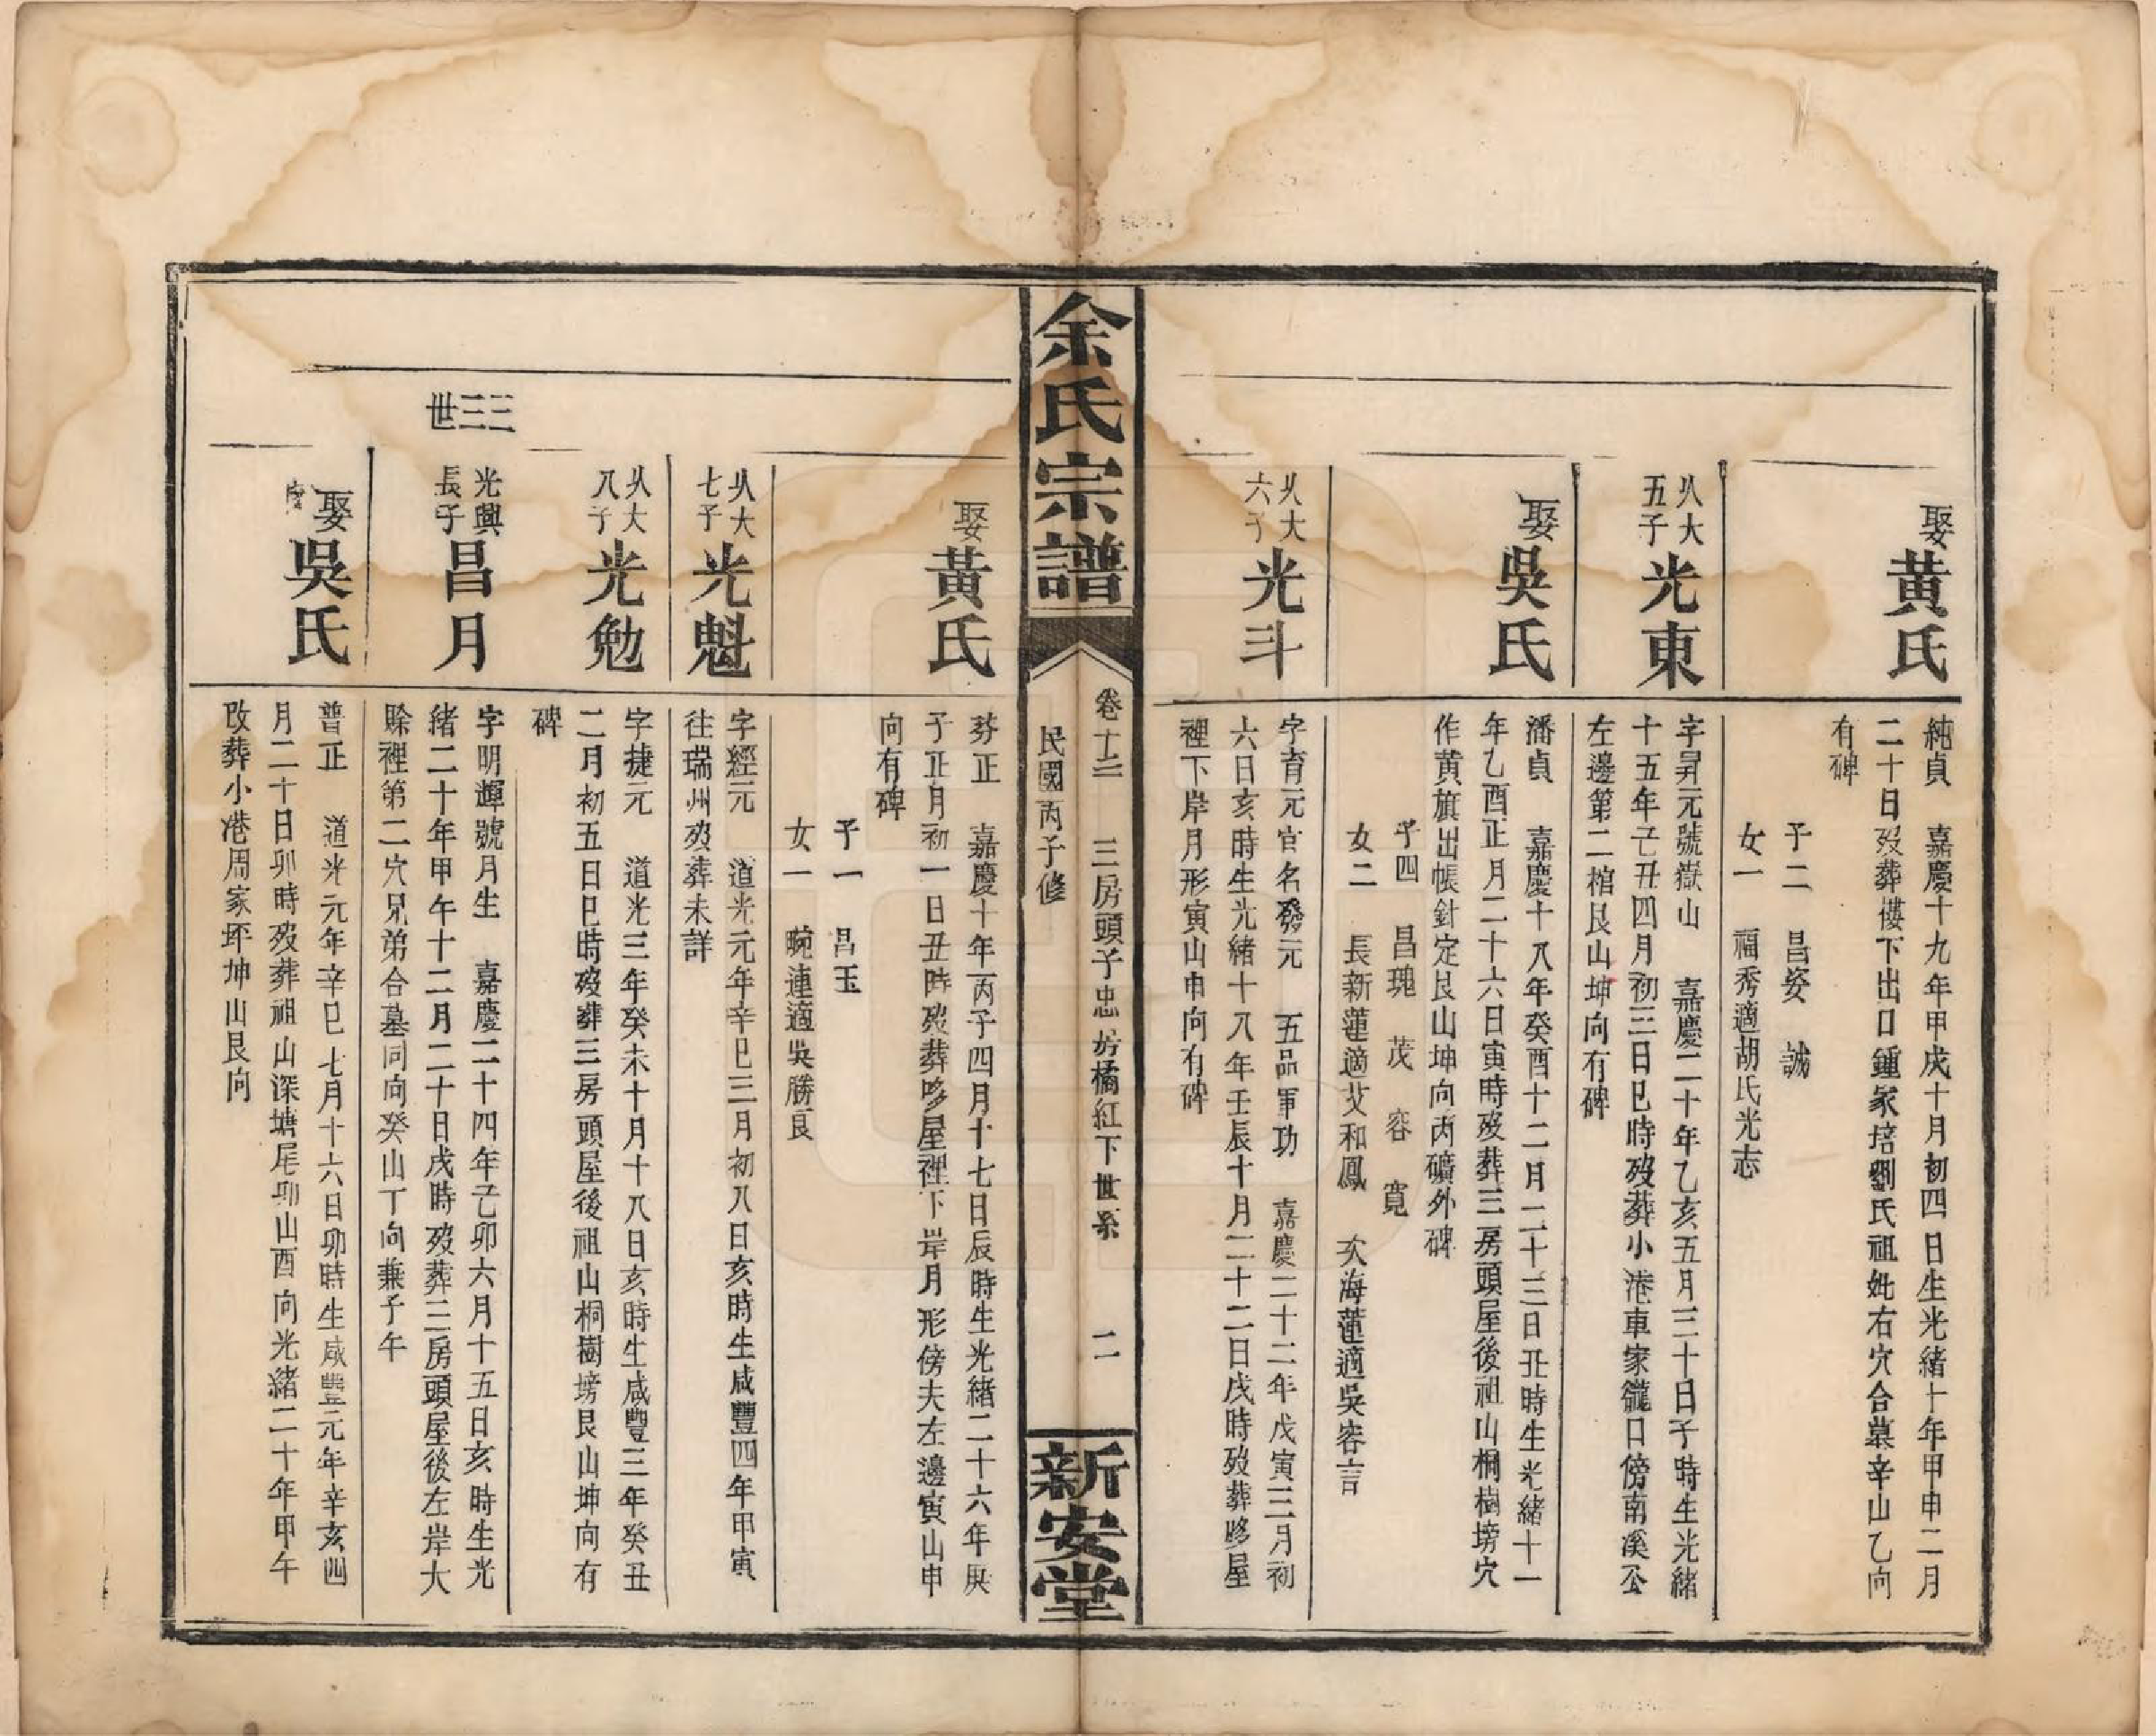 娶黃氏
純貞　嘉慶十九年甲戌十月初四日生光緒十年甲申二月
二十日歿葬樓下出口鍾家培劉氏祖妣右穴合墓辛山乙向
有碑
子二　昌姿　誠
女一　福秀適胡氏光志
从大
五子
光東
字昇元號嶽山　嘉慶二十年乙亥五月三十日子時生光緒
十五年己丑四月初三日巳時歿葬小港車家籠口傍南溪公
左邊第二棺艮山坤向有碑
娶吳氏
潘貞　嘉慶十八年癸酉十二月二十三日丑時生光緒十一
年乙酉正月二十六日寅時歿葬三房頭屋後祖山桐樹塝穴
作黃旗出帳針定艮山坤向丙礦外碑
子四　昌瑰　茂　容　寬
女二　長新蓮適艾和鳳　次海蓮適吳容言
从大
六子
光斗
字育元官名發元　五品軍功　嘉慶二十二年戊寅三月初
六日亥時生光緒十八年壬辰十月二十二日戌時歿葬哆屋
裡下岸月形寅山申向有碑
余氏宗譜
卷十三　三房頭子忠房橘紅下世系　二
民國丙子修
新安堂
娶黃氏
芬正　嘉慶十年丙子四月十七日辰時生光緒二十六年庚
子正月初一日丑時歿葬哆屋裡下岸月形傍夫左邊寅山申
向有碑
子一　昌玉
女一　畹連適吳勝良
从大
七子
光魁
字經元　道光元年辛巳三月初八日亥時生咸豐四年甲寅
往瑞州歿葬未詳
从大
八子
光勉
字捷元　道光三年癸未十月十八日亥時生咸豐三年癸丑
二月初五日巳時歿葬三房頭屋後祖山桐樹塝艮山坤向有
碑
三三世
光興
長子
昌月
字明輝號月生　嘉慶二十四年己卯六月十五日亥時生光
緒二十年甲午十二月二十日戌時歿葬三房頭屋後左岸大
賒裡第二穴兄弟合墓同向癸山丁向兼子午
娶吳氏
普正　道光元年辛巳七月十六日卯時生咸豐元年辛亥四
月二十日卯時歿葬祖山深塘尾卯山酉向光緒二十年甲午
改葬小港周家坪坤山艮向